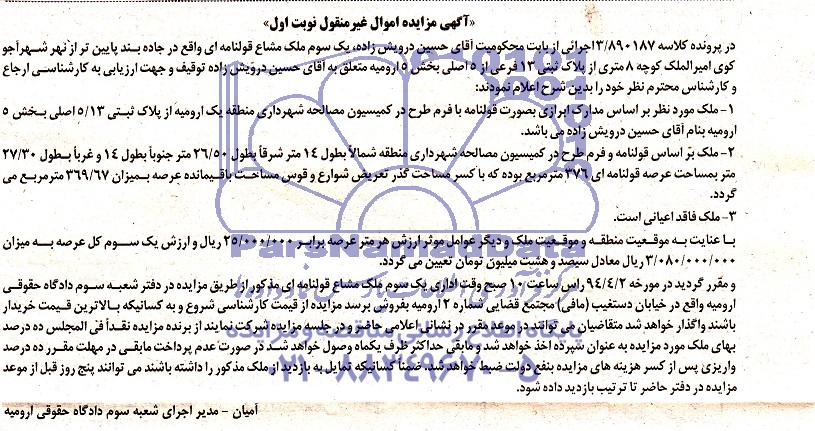 «آگهی مزایده اموال غیرمنقول نوبت اول»
در پرونده کلاسه ۳/۸۹۰۱۸۷اجرائی از بابت محکومیت آقای حسین درویش زاده، یک سوم ملک مشاع قولنامه ای واقع در جاده بند پایین تر از نهر شهرآجو
کوی امیرالملک کوچه ۸ متری از پلاک ثبتی ۱۳ فرعی از ۵ اصلی بخش ۵ ارومیه متعلق به آقای حسین درویش زاده توقیف و جهت ارزیابی به کارشناسی ارجاع
و کارشناس محترم نظر خود را بدین شرح اعلام نمودند:
۱- ملک مورد نظر بر اساس مدارک ابرازی بصورت قولنامه با فرم طرح در کمیسیون مصالحه شهرداری منطقه یک ارومیه از پلاک ثبتی ۵/۱۳ اصلی بخش ۵
ارومیه بنام آقای حسین درویش زاده می باشد.
۲- ملک بر اساس قولنامه و فرم طرح در کمیسیون مصالحه شهرداری منطقه شمالاً بطول ۱۴ متر شرقاً بطول ۲۶/۵۰ متر جنوباً بطول ۱۴ و غرباً بطول ۲۷/۳۰
متر بمساحت عرصه قولنامه ای ۳۷۶ مترمربع بوده که با کسر مساحت گذر تعریض شوارع و قوس مساحت باقیمانده عرصه بمیزان ۳۶۹/۶۷ مترمربع می
گردد.
۳- ملک فاقد اعیانی است.
با عنایت به موقعیت منطقه و موقعیت ملک و دیگر عوامل موثر ارزش هر متر عرصه برابر ۲۵/۰۰۰/۰۰۰ ریال و ارزش یک سوم کل عرصه به میزان
۳/۰۸۰/۰۰۰/۰۰۰ ریال معادل سیصد و هشت میلیون تومان تعیین می گردد.
و مقرر گردید در مورخه ۹۴/۴/۲ راس ساعت ۱۰ صبح وقت اداری یک سوم ملک مشاع قولنامه ای مذکور از طریق مزایده در دفتر شعبه سوم دادگاه حقوقی
ارومیه واقع در خیابان دستغیب (مافی) مجتمع قضایی شماره ۲ ارومیه بفروش برسد مزایده از قیمت کارشناسی شروع و به کسانیکه بالاترین قیمت خریدار
باشند واگذار خواهد شد متقاضیان می توانند در موعد مقرر در نشانی اعلامی حاضر و در جلسه مزایده شرکت نمایند از برنده مزایده نقداً فی المجلس ده درصد
بهای ملک مورد مزایده به عنوان سپرده اخذ خواهد شد و مابقی حداکثر ظرف یکماه وصول خواهد شد در صورت عدم پرداخت مابقی در مهلت مقرر ده درصد
واریزی پس از کسر هزینه های مزایده بنفع دولت ضبط خواهد شد. ضمناً کسانیکه تمایل به بازدید از ملک مذکور را داشته باشند می توانند پنج روز قبل از موعد
مزایده در دفتر حاضر تا ترتیب بازدید داده شود.
آمیان - مدیر اجرای شعبه سوم دادگاه حقوقی ارومیه
ParsNamadData
۰۲۱-۸۸۳۴۹۶۷۰-۵